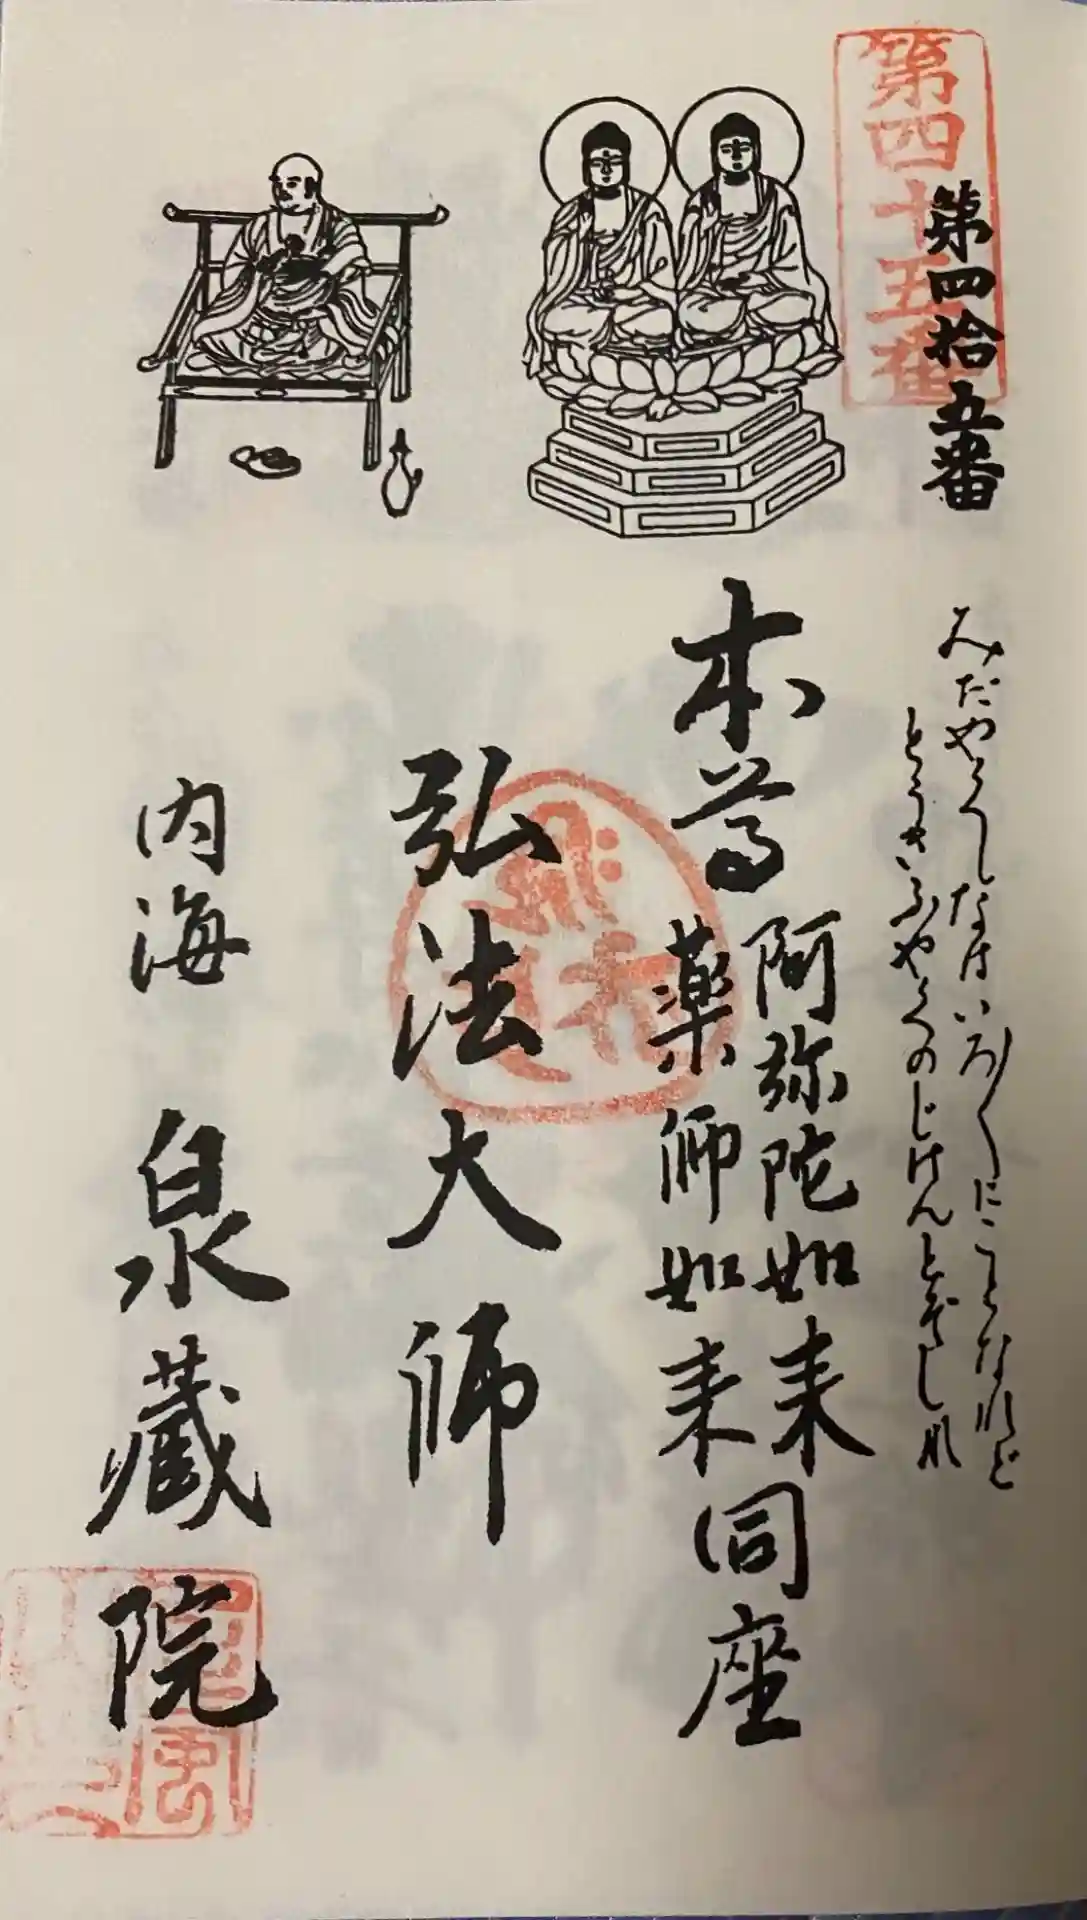 第四十五番
第四拾五番
みだやくしなはいろ〳〵にことなれど
とうきふやくのじげんとぞしれ
本尊
阿弥陀如来
薬師如来
同座
弘法大師
内海 泉蔵院